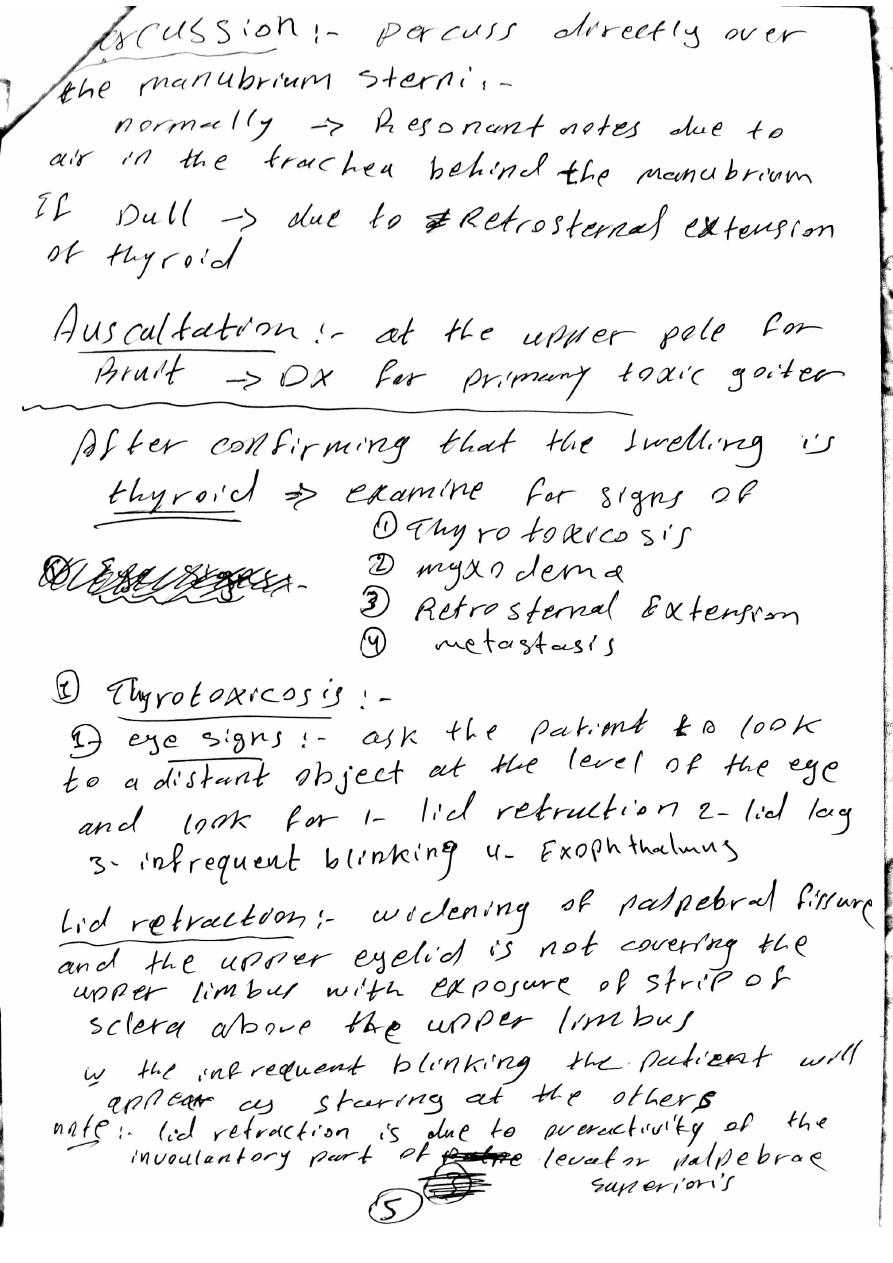 ercussion :- percuss directly over
the manubrium sterni :-
normally -> Resonant notes due to
air in the trachea behind the manubrium
If Dull -> due to Retrosternal extension
of thyroid
Auscultation :- at the upper pole for
Bruit -> DX for primary toxic goiter
After confirming that the swelling is
thyroid => examine for signs of
① Thyrotoxicosis
② myxodema
③ Retrosternal Extension
④ metastasis
① Thyrotoxicosis :-
1- eye signs :- ask the patient to look
to a distant object at the level of the eye
and look for 1- lid retraction 2- lid lag
3- infrequent blinking 4- Exophthalmus
Lid retraction :- widening of palpebral fissure
and the upper eyelid is not covering the
upper limbus with exposure of strip of
sclera above the upper limbus
w the infrequent blinking the patient will
appear as staring at the others
note :- lid retraction is due to overactivity of the
invoulantory part of levator palpebrae
superioris
5